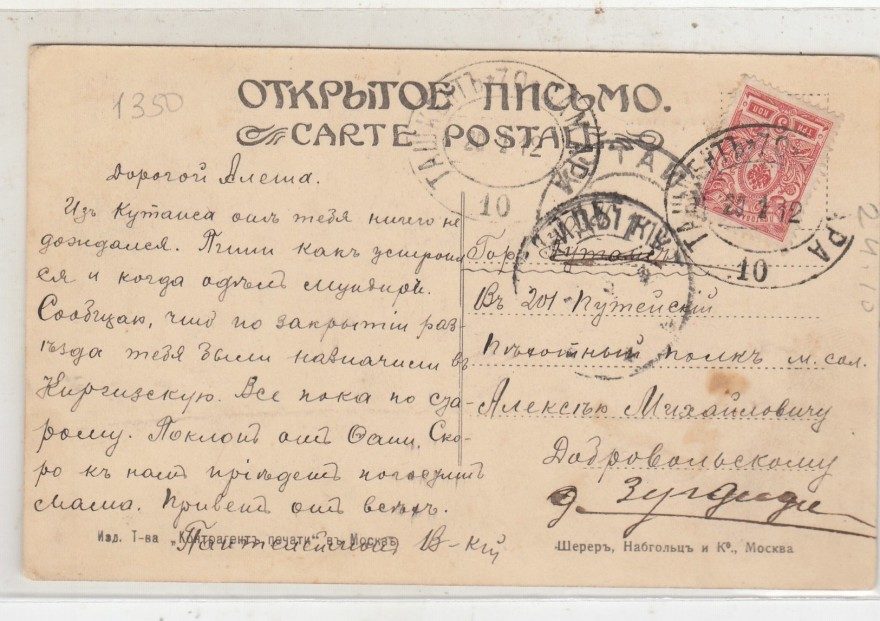 1350
ОТКРЫТОЕ ПИСЬМО.
CARTE POSTALE
ТАШКЕНТЪ-ПАРА
10
ТАШКЕНТЪ
29 1 12
РА
10
24.10
Дорогой Алеша.
Изъ Кутаиса отъ тебя ничего не
дождался. Пиши какъ устроил
ся и когда одѣлъ мундиръ.
Сообщаю, что по закрытіи раз-
ъѣзда тебя были назначили въ
Киргизскую. Все пока по ста-
рому. Поклонъ отъ Сани. Ско-
ро къ намъ пріѣдетъ погостить
мама. Привет отъ всѣхъ.
В-кій
Гор. Кутаисъ
Въ 201 Путейскій
Пѣхотный полкъ м. сол.
Алексѣю Михайловичу
Добровольскому
г. Зугдиди
Изд. Т-ва „Контрагентъ печати" въ Москвѣ
Шереръ, Набгольцъ и Кº., Москва